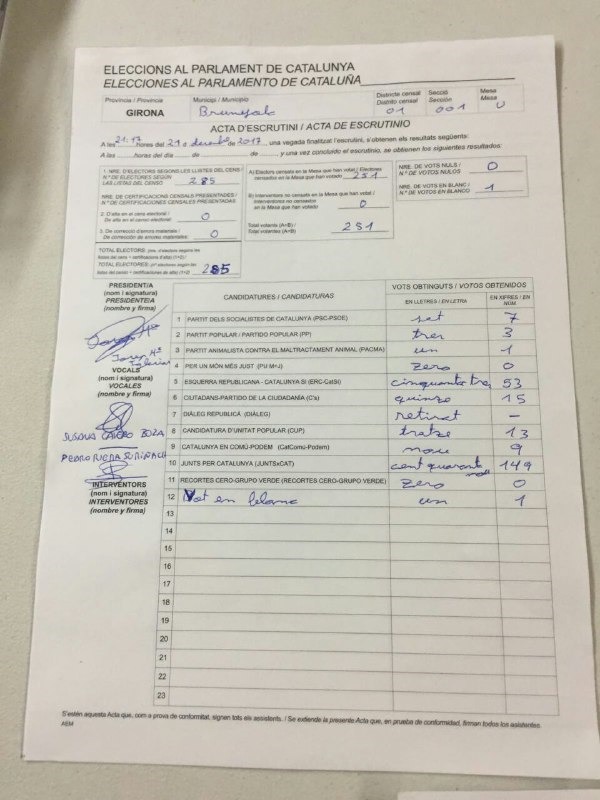 ELECCIONS AL PARLAMENT DE CATALUNYA
ELECCIONES AL PARLAMENTO DE CATALUÑA
Província / Provincia
GIRONA
Municipi / Municipio
Brunyola
Districte censal
Distrito censal 01
Secció
Sección 001
Mesa
Mesa U
ACTA D'ESCRUTINI / ACTA DE ESCRUTINIO
A les 21:17 hores del 21 d desembre de 2017, una vegada finalitzat l'escrutini, s'obtenen els resultats següents:
A las horas del día de de , y una vez concluido el escrutinio, se obtienen los siguientes resultados:
1. NRE. D'ELECTORS SEGONS LES LLISTES DEL CENS /
N.º DE ELECTORES SEGÚN
LAS LISTAS DEL CENSO 285
NRE. DE CERTIFICACIONS CENSALS PRESENTADES /
N.º DE CERTIFICACIONES CENSALES PRESENTADAS
2. D'alta en el cens electoral /
De alta en el censo electoral 0
3. De correcció d'errors materials /
De corrección de errores materiales 0
TOTAL ELECTORS: (nre. d'electors segons les
llistes del cens + certificacions d'alta) (1+2) /
TOTAL ELECTORES: (nº electores según las
listas del censo + certificaciones de alta) (1+2) 285
A) Electors censats en la Mesa que han votat / Electores
censados en la Mesa que han votado 251
B) Interventors no censats en la Mesa que han votat /
Interventores no censados
en la Mesa que han votado 0
Total votants (A+B) /
Total votantes (A+B) 251
NRE. DE VOTS NULS /
N.º DE VOTOS NULOS 0
NRE. DE VOTS EN BLANC /
N.º DE VOTOS EN BLANCO 1
PRESIDENT/A
(nom i signatura)
PRESIDENTE/A
(nombre y firma)
Josep Mª
VOCALS
(nom i signatura)
VOCALES
(nombre y firma)
SUSANA BOZA
PEDRO RIERA
INTERVENTORS
(nom i signatura)
INTERVENTORES
(nombre y firma)
CANDIDATURES / CANDIDATURAS
VOTS OBTINGUTS / VOTOS OBTENIDOS
EN LLETRES / EN LETRA
EN XIFRES / EN NÚM.
1 PARTIT DELS SOCIALISTES DE CATALUNYA (PSC-PSOE) set 7
2 PARTIT POPULAR / PARTIDO POPULAR (PP) tres 3
3 PARTIT ANIMALISTA CONTRA EL MALTRACTAMENT ANIMAL (PACMA) un 1
4 PER UN MÓN MÉS JUST (PU M+J) zero 0
5 ESQUERRA REPUBLICANA - CATALUNYA SÍ (ERC-CatSí) cinquanta tres 53
6 CIUTADANS-PARTIDO DE LA CIUDADANÍA (C's) quinze 15
7 DIÀLEG REPUBLICÀ (DIÀLEG) retirat -
8 CANDIDATURA D'UNITAT POPULAR (CUP) tratze 13
9 CATALUNYA EN COMÚ-PODEM (CatComú-Podem) nou 9
10 JUNTS PER CATALUNYA (JUNTSxCAT) cent quaranta nou 149
11 RECORTES CERO-GRUPO VERDE (RECORTES CERO-GRUPO VERDE) zero 0
12 Vot en blanc un 1
13
14
15
16
17
18
19
20
21
22
23
S'estén aquesta Acta que, com a prova de conformitat, signen tots els assistents. / Se extiende la presente Acta que, en prueba de conformidad, firman todos los asistentes.